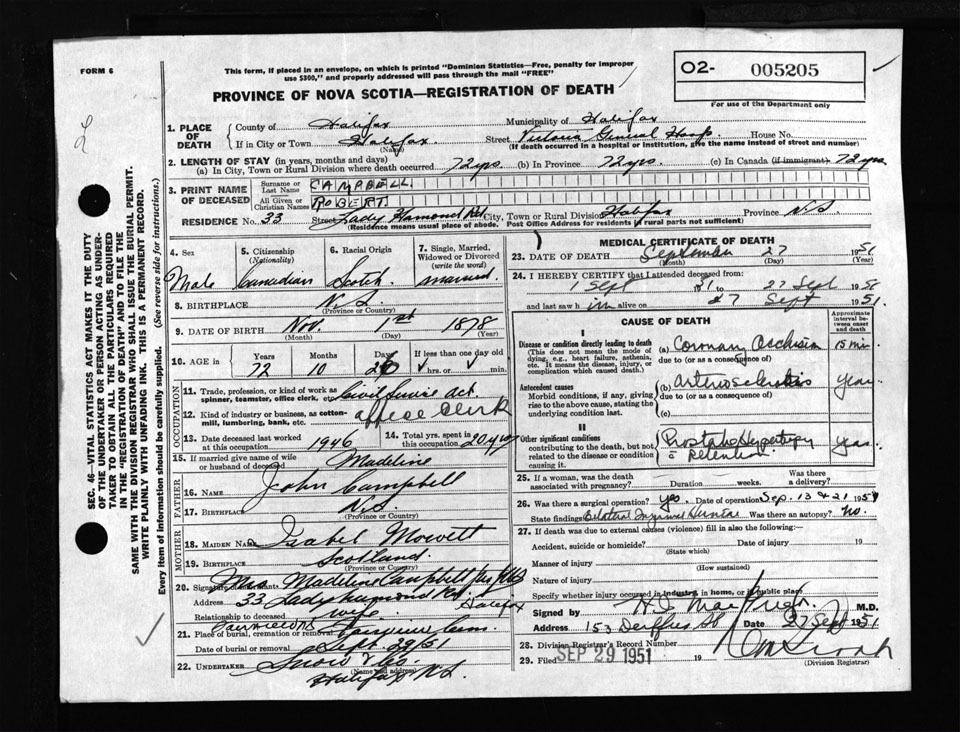 FORM 6
This form, if placed in an envelope, on which is printed "Dominion Statistics—Free, penalty for improper
use $300," and properly addressed will pass through the mail "FREE"
O2- 005205
For use of the Department only
PROVINCE OF NOVA SCOTIA—REGISTRATION OF DEATH
1. PLACE OF DEATH
County of Halifax Municipality of Halifax
If in City or Town Halifax (Name) Street Victoria General Hosp. House No.
(If death occurred in a hospital or institution, give the name instead of street and number)
2. LENGTH OF STAY (in years, months and days)
(a) In City, Town or Rural Division where death occurred 72 yrs. (b) In Province 72 yrs. (c) In Canada (if immigrant) 72 yrs
3. PRINT NAME OF DECEASED
Surname or Last Name CAMPBELL
All Given or Christian Names ROBERT
RESIDENCE No. 33 Street Lady Hamond Rd City, Town or Rural Division Halifax Province N.S
(Residence means usual place of abode. Post Office Address for residents in rural parts not sufficient)
4. Sex Male
5. Citizenship (Nationality) Canadian
6. Racial Origin Scotch
7. Single, Married, Widowed or Divorced (write the word) married
8. BIRTHPLACE N.S. (Province or Country)
9. DATE OF BIRTH Nov. (Month) 1st (Day) 1878 (Year)
10. AGE in Years 72 Months 10 Days 26 If less than one day old hrs. or min.
OCCUPATION
11. Trade, profession, or kind of work as spinner, teamster, office clerk, etc. Civil Service
12. Kind of industry or business, as cotton-mill, lumbering, bank, etc. office clerk
13. Date deceased last worked at this occupation 1946
14. Total yrs. spent in this occupation 20 yrs
15. If married give name of wife or husband of deceased Madeline
FATHER
16. NAME John Campbell
17. BIRTHPLACE N.S. (Province or Country)
MOTHER
18. MAIDEN NAME Isabel Mowett
19. BIRTHPLACE Scotland. (Province or Country)
20. Signature of informant Mrs. Madeline Campbell
Address 33 Lady Hammond Rd Halifax
Relationship to deceased wife
21. Place of burial, cremation or removal Fairview Cem.
Date of burial or removal Sept. 29/51
22. UNDERTAKER Snow & Co.
(Name and address) Halifax N.S.
MEDICAL CERTIFICATE OF DEATH
23. DATE OF DEATH September (Month) 27 (Day) 1951
24. I HEREBY CERTIFY that I attended deceased from:
1 Sept 51 to 27 Sept 19
and last saw him alive on 27 Sept 1951
CAUSE OF DEATH
Approximate interval between onset and death
I
Disease or condition directly leading to death (a) Coronary Occlusion 15 min
(This does not mean the mode of dying, e.g., heart failure, asthenia, etc. It means the disease, injury, or complication which caused death.)
due to (or as a consequence of)
Antecedent causes (b) Arteriosclerosis years
Morbid conditions, if any, giving rise to the above cause, stating the underlying condition last.
due to (or as a consequence of)
(c)
II
Other significant conditions contributing to the death, but not related to the disease or condition causing it.
Prostatic Hypertrophy c̄ retention yrs.
25. If a woman, was the death associated with pregnancy? Duration weeks. Was there a delivery?
26. Was there a surgical operation? yes Date of operation Sep. 13 & 21 1951
State findings Bilateral Inguinal Herniae Was there an autopsy? no.
27. If death was due to external causes (violence) fill in also the following:—
Accident, suicide or homicide? (State which) Date of injury 19
Manner of injury (How sustained)
Nature of injury
Specify whether injury occurred in industry, in home, or in public place
Signed by M.D.
Address 153 St Date 27 Sept 1951
28. Division Registrar's Record Number
29. Filed SEP 29 1951 19
(Division Registrar)
SEC. 46—VITAL STATISTICS ACT MAKES IT THE DUTY
OF THE UNDERTAKER OR PERSON ACTING AS UNDER-
TAKER TO OBTAIN ALL THE PARTICULARS REQUIRED
IN THE "REGISTRATION OF DEATH" AND TO FILE THE
SAME WITH THE DIVISION REGISTRAR WHO SHALL ISSUE THE BURIAL PERMIT.
WRITE PLAINLY WITH UNFADING INK. THIS IS A PERMANENT RECORD.
Every item of Information should be carefully supplied. (See reverse side for instructions.)